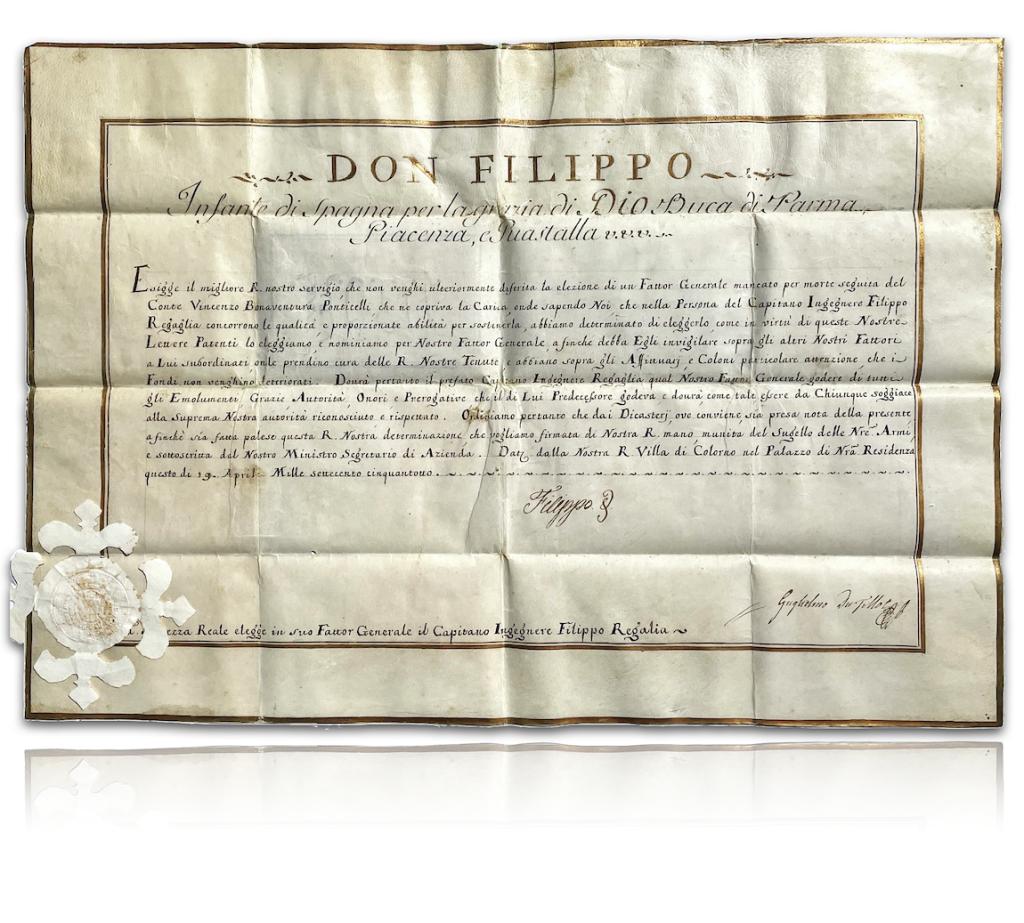 DON FILIPPO
Infante di Spagna per la grazia di DIO Duca di Parma,
Piacenza, e Guastalla v.v.v.
Esigge il migliore R. nostro servigio che non venghi ulteriormente diferita la elezione di un Fattor Generale mancato per morte seguita del
Conte Vincenzo Bonaventura Ponticelli che ne copriva la Carica, onde sapendo Noi che nella Persona del Capitano Ingegnere Filippo
Regaglia concorrono le qualità e proporzionate abilità per sostinerla, abbiamo determinato di eleggerlo, come in virtù di queste Nostre
Lettere Patenti lo eleggiamo e nominiamo per Nostro Fattor Generale a finche debba Egli invigilare sopra gli altri Nostri Fattori
a Lui subordinati onde prendino cura delle R. Nostre Tenute e abbiano sopra gli Affittuarj e Coloni particolare attenzione che i
Fondi non venghino deteriorati. Dourà pertanto il prefato Capitano Ingegnere Regaglia qual Nostro Fattor Generale godere di tutti
gli Emolumenti, Grazie Autorità, Onori e Prerogative che il di Lui Predecessore godeva e dourà come tale essere da Chiunque soggiace
alla Suprema Nostra autorità riconosciuto e rispettato. Ordiniamo pertanto che dai Dicasterj ove conviene sia presa nota della presente
afinchè sia fatta palese questa R. Nostra determinazione che vogliamo firmata di Nostra R. mano munita del Sugello delle Nre Armi
e sottoscritta dal Nostro Ministro Segretario di Azienda. Dat. dalla Nostra R. Villa di Colorno nel Palazzo di Nra Residenza
questo di 19. April. Mille settecento cinquantouno.
Filippo
Guglielmo Du Tillot
Reale elegge in suo Fattor Generale il Capitano Ingegnere Filippo Regalia